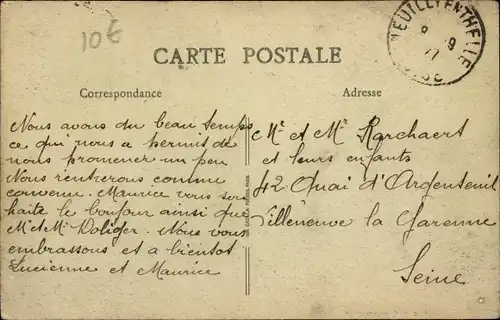 10€
CARTE POSTALE
Correspondance
Nous avons du beau temps
ce qui nous a permit de
nous promener un peu
Nous rentrerons comme
convenu. Maurice vous sou
haite le bonjour ainsi que
Mr et Mme . Nous vous
embrassons et a bientot
Lucienne et Maurice
Adresse
Mr et Me Karchaert
et leurs enfants
42 Quai d'Argenteuil
Villeneuve la Garenne
Seine
NEUILLY EN THELLE
OISE